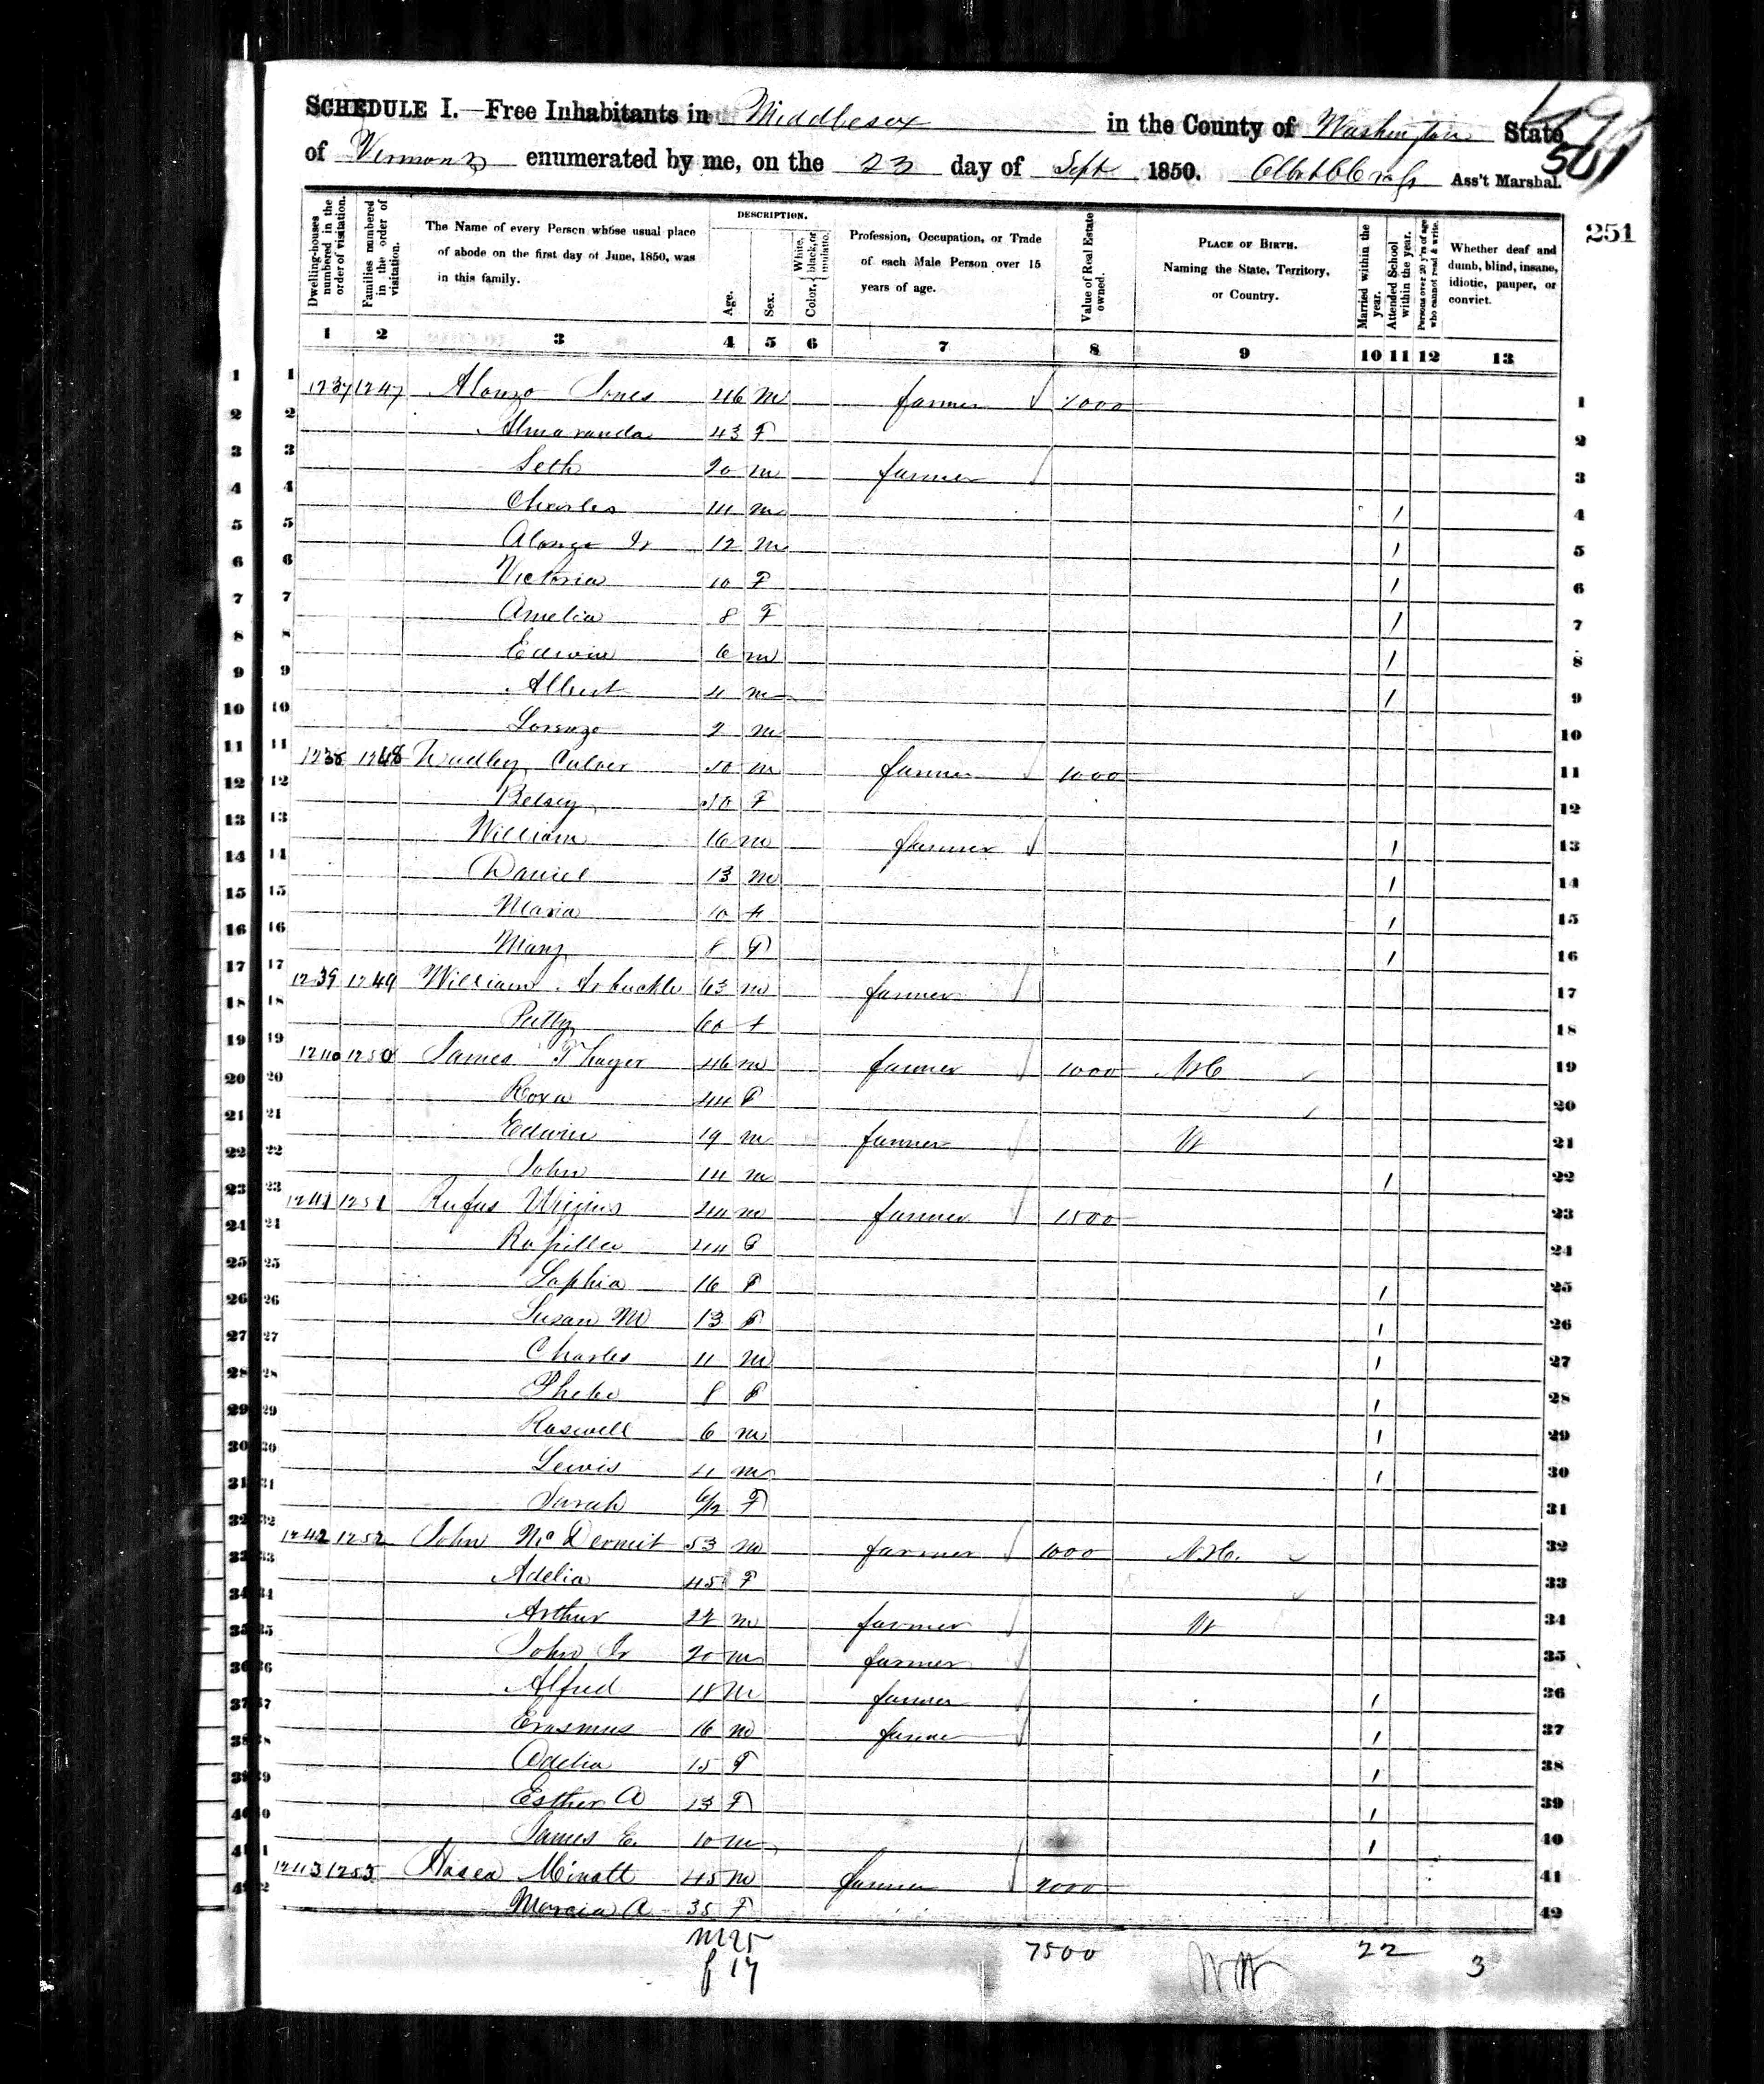 SCHEDULE I.—Free Inhabitants in Middlesex in the County of Washington State
of Vermont enumerated by me, on the 23 day of Sept 1850. Ass't Marshal.
501
251
Dwelling-houses numbered in the order of visitation.
Families numbered in the order of visitation.
The Name of every Person whose usual place of abode on the first day of June, 1850, was in this family.
DESCRIPTION.
Age.
Sex.
Color, { White, black, or mulatto.
Profession, Occupation, or Trade of each Male Person over 15 years of age.
Value of Real Estate owned.
PLACE OF BIRTH. Naming the State, Territory, or Country.
Married within the year.
Attended School within the year.
Persons over 20 y'rs of age who cannot read & write.
Whether deaf and dumb, blind, insane, idiotic, pauper, or convict.
1 2 3 4 5 6 7 8 9 10 11 12 13
1 1 1237 1247 Alonzo Jones 46 M farmer 1
2 2 Almaranda 43 F 2
3 3 Seth 20 M farmer 3
4 4 Charles 14 M / 4
5 5 Alonzo Jr 12 M / 5
6 6 Victoria 10 F / 6
7 7 Amelia 8 F / 7
8 8 Edwin 6 M / 8
9 9 Albert 4 M / 9
10 10 Lorenzo 2 M 10
11 11 1238 1248 Culver 50 M farmer 1000 11
12 12 Betsey 50 F 12
13 13 William 16 M farmer / 13
14 14 Daniel 13 M / 14
15 15 Maria 10 F / 15
16 16 Mary 8 F / 16
17 17 1239 1249 William Arbuckle 63 M farmer 17
18 18 Patty 60 F 18
19 19 1240 1250 James Thayer 46 M farmer 1000 N H 19
20 20 Roxa 44 F 20
21 21 Edwin 19 M farmer Vt 21
22 22 John 14 M / 22
23 23 1241 1251 Rufus 44 M farmer 1500 23
24 24 44 F 24
25 25 Sophia 16 F / 25
26 26 Susan M 13 F / 26
27 27 Charles 11 M / 27
28 28 Phebe 8 F / 28
29 29 Roswell 6 M / 29
30 30 Lewis 4 M / 30
31 31 Sarah 6/12 F 31
32 32 1242 1252 John McDermit 53 M farmer 1000 N.H. 32
33 33 Adelia 45 F 33
34 34 Arthur 22 M farmer Vt 34
35 35 John Jr 20 M farmer 35
36 36 Alfred 18 M farmer / 36
37 37 Erasmus 16 M farmer / 37
38 38 Adelia 15 F / 38
39 39 Esther A 13 F / 39
40 40 James E. 10 M / 40
41 41 1243 1253 Hosea Minott 45 M farmer 2000 41
42 42 Marcia A 35 F 42
M 25
f 17
7500
22
3